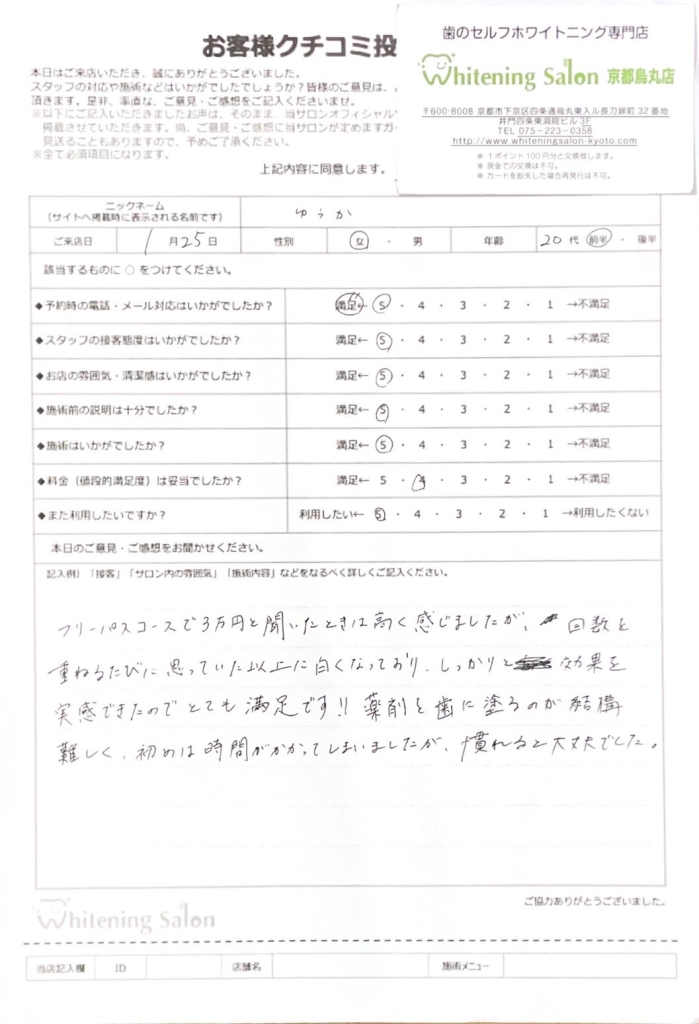 お客様クチコミ投
歯のセルフホワイトニング専門店
Whitening Salon 京都烏丸店
〒600-8008 京都市下京区四条通烏丸東入ル長刀鉾町 32 番地
井門四条東洞院ビル 3F
TEL 075-223-0358
http://www.whiteningsalon-kyoto.com
※ 1ポイント100円分と交換致します。
※ 現金での交換は不可。
※ カードを紛失した場合再発行は不可。
本日はご来店いただき、誠にありがとうございました。
スタッフの対応や施術などはいかがでしたでしょうか？皆様のご意見は、
頂きます。是非、率直な、ご意見・ご感想をご記入くださいませ。
※以下にご記入いただきましたお声は、そのまま、当サロンオフィシャル
掲載させていただきます。尚、ご意見・ご感想に当サロンが定めますガ
見送ることもありますので、予めご了承ください。
※全て必須項目になります。
上記内容に同意します。
ニックネーム
（サイトへ掲載時に表示される名前です）
ゆうか
ご来店日 1月25日 性別 女 ・ 男 年齢 20代 前半 ・ 後半
該当するものに ○ をつけてください。
◆予約時の電話・メール対応はいかがでしたか？ 満足← 5 ・ 4 ・ 3 ・ 2 ・ 1 →不満足
◆スタッフの接客態度はいかがでしたか？ 満足← 5 ・ 4 ・ 3 ・ 2 ・ 1 →不満足
◆お店の雰囲気・清潔感はいかがでしたか？ 満足← 5 ・ 4 ・ 3 ・ 2 ・ 1 →不満足
◆施術前の説明は十分でしたか？ 満足← 5 ・ 4 ・ 3 ・ 2 ・ 1 →不満足
◆施術はいかがでしたか？ 満足← 5 ・ 4 ・ 3 ・ 2 ・ 1 →不満足
◆料金（値段的満足度）は妥当でしたか？ 満足← 5 ・ 4 ・ 3 ・ 2 ・ 1 →不満足
◆また利用したいですか？ 利用したい← 5 ・ 4 ・ 3 ・ 2 ・ 1 →利用したくない
本日のご意見・ご感想をお聞かせください。
記入例）「接客」「サロン内の雰囲気」「施術内容」などをなるべく詳しくご記入ください。
フリーパスコースで3万円と聞いたときは高く感じましたが、回数を
重ねるたびに思っていた以上に白くなっており、しっかりと効果を
実感できたのでとても満足です!! 薬剤を歯に塗るのが結構
難しく、初めは時間がかかってしまいましたが、慣れると大丈夫でした。
ご協力ありがとうございました。
Whitening Salon
当店記入欄 ID 店舗名 施術メニュー